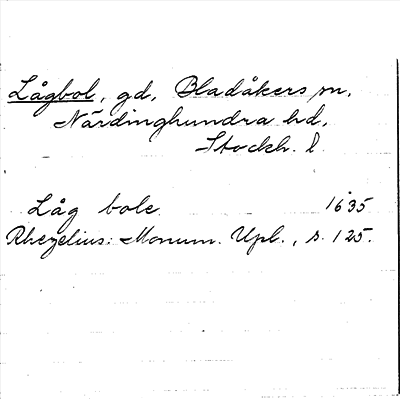 Lågbol, gd, Bladåkers sn,
Närdinghundra hd,
Stockh. l.
Låg bole. 1635
Rhezelius: Monum. Upl., s. 125.